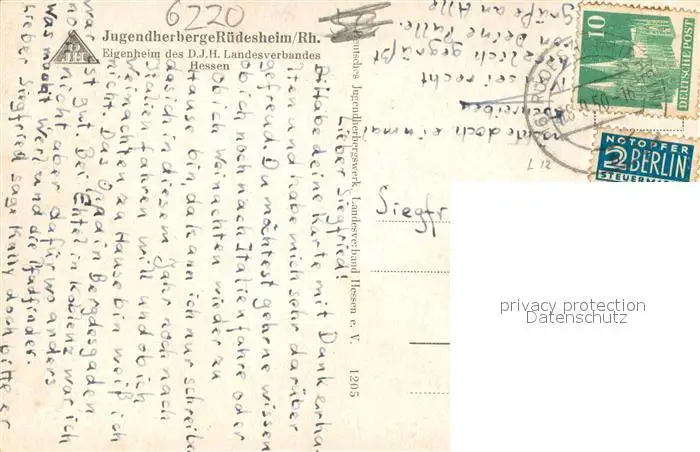 6220
Jugendherberge Rüdesheim/Rh.
Eigenheim des D.J.H. Landesverbandes
Hessen
DJH
Deutsches Jugendherbergswerk, Landesverband Hessen e. V. 1205
Lieber Siegfried!
habe deine Karte mit Dank erhal-
ten und habe mich sehr darüber
gefreut. Du möchtest gehrne wissen
ob ich noch nach Italien fahre oder
ob ich Weihnachten wieder zu
Hause bin da kann ich nur schreiben
das ich in diesem Jahr noch nach
Italien fahren will und ob ich
Weihnachten zu Hause bin weiß ich
nicht. Das in Bergdesgaden
war gut. Bei in Koblenz war ich
noch nicht aber dafür wo anders
Was macht Weil und die Pfadfinder.
Lieber Siegfried sage Knally doch bitte er
möchte doch einmal
schreiben
sei recht
herzlich gegrüßt
von deine
Grüße an Alle
10
DEUTSCHE POST
NOTOPFER
2 BERLIN
STEUERMARKE
L 12
Siegfr
privacy protection
Datenschutz